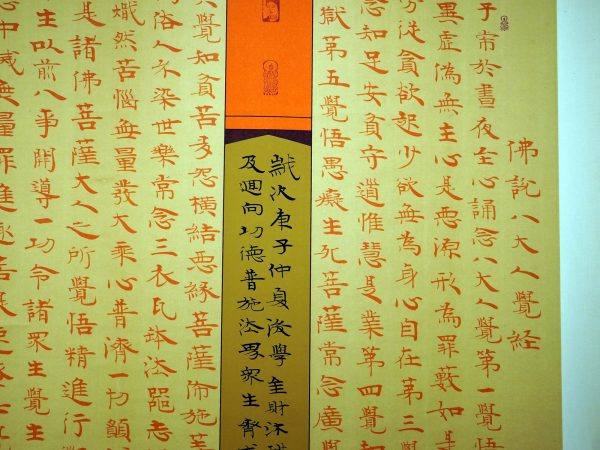 佛說八大人覺経
子常於晝夜至心誦念八大人覺第一覺悟
異虛偽無主心是惡源形為罪藪如是
勞從貪欲起少欲無為身心自在第三覺
念知足安貧守道惟慧是業第四覺知
獄第五覺悟愚癡生死菩薩常念廣學
歲次庚子仲夏後學金財沐
及迴向功德普施法界眾生齊成
覺知貧苦多怨橫結惡緣菩薩布施等
俗人不染世樂常念三衣瓦鉢法器志
熾然苦惱無量發大乘心普濟一切願
是諸佛菩薩大人之所覺悟精進行
生以前八事開導一切令諸眾生覺生
中滅無量罪進趣菩提速登